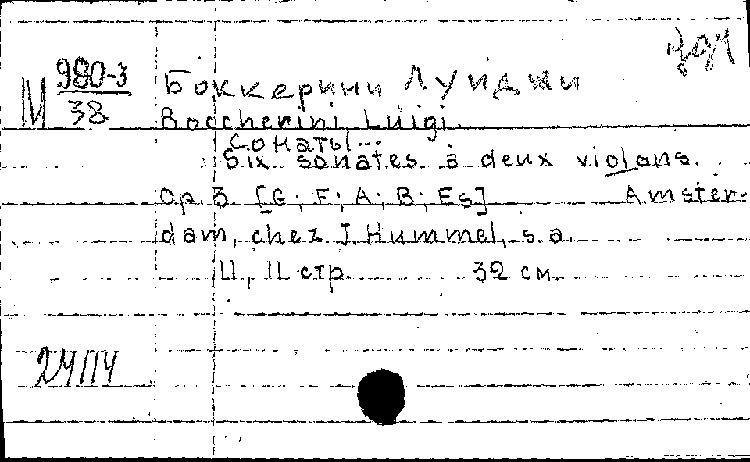 М 980-3
38
Боккерини Луиджи
Boccherini, Luigi.
Сонаты...
Six sonates à deux violons.
Op. 3. [G; F; A; B; Es] Amster-
dam, chez J. Hummel, s.a.
11, 11 стр. 32 см.
24114